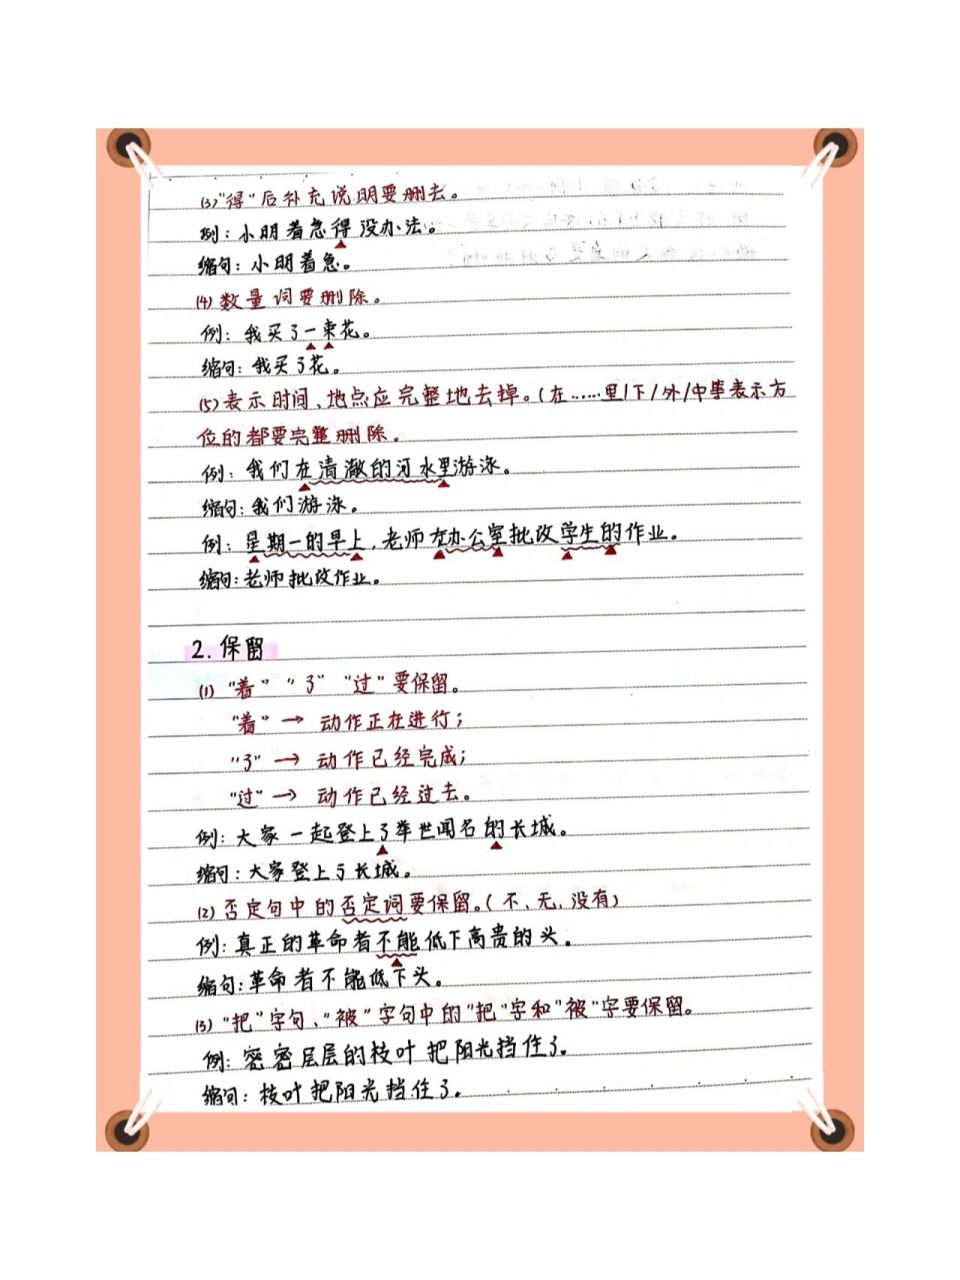 (3)"得"后补充说明要删去。
例:小明着急得没办法。
缩句:小明着急。
(4)数量词要删除。
例:我买了一束花。
缩句:我买了花。
(5)表示时间、地点应完整地去掉。(在……里/下/外/中等表示方
位的都要完整删除。
例:我们在清澈的河水里游泳。
缩句:我们游泳。
例:星期一的早上,老师在办公室批改学生的作业。
缩句:老师批改作业。
2.保留
(1)"着""了""过"要保留。
"着"→动作正在进行;
"了"→动作已经完成;
"过"→动作已经过去。
例:大家一起登上了举世闻名的长城。
缩句:大家登上了长城。
(2)否定句中的否定词要保留。(不、无、没有)
例:真正的革命者不能低下高贵的头。
缩句:革命者不能低下头。
(3)"把"字句、"被"字句中的"把"字和"被"字要保留。
例:密密层层的枝叶把阳光挡住了。
缩句:枝叶把阳光挡住了。